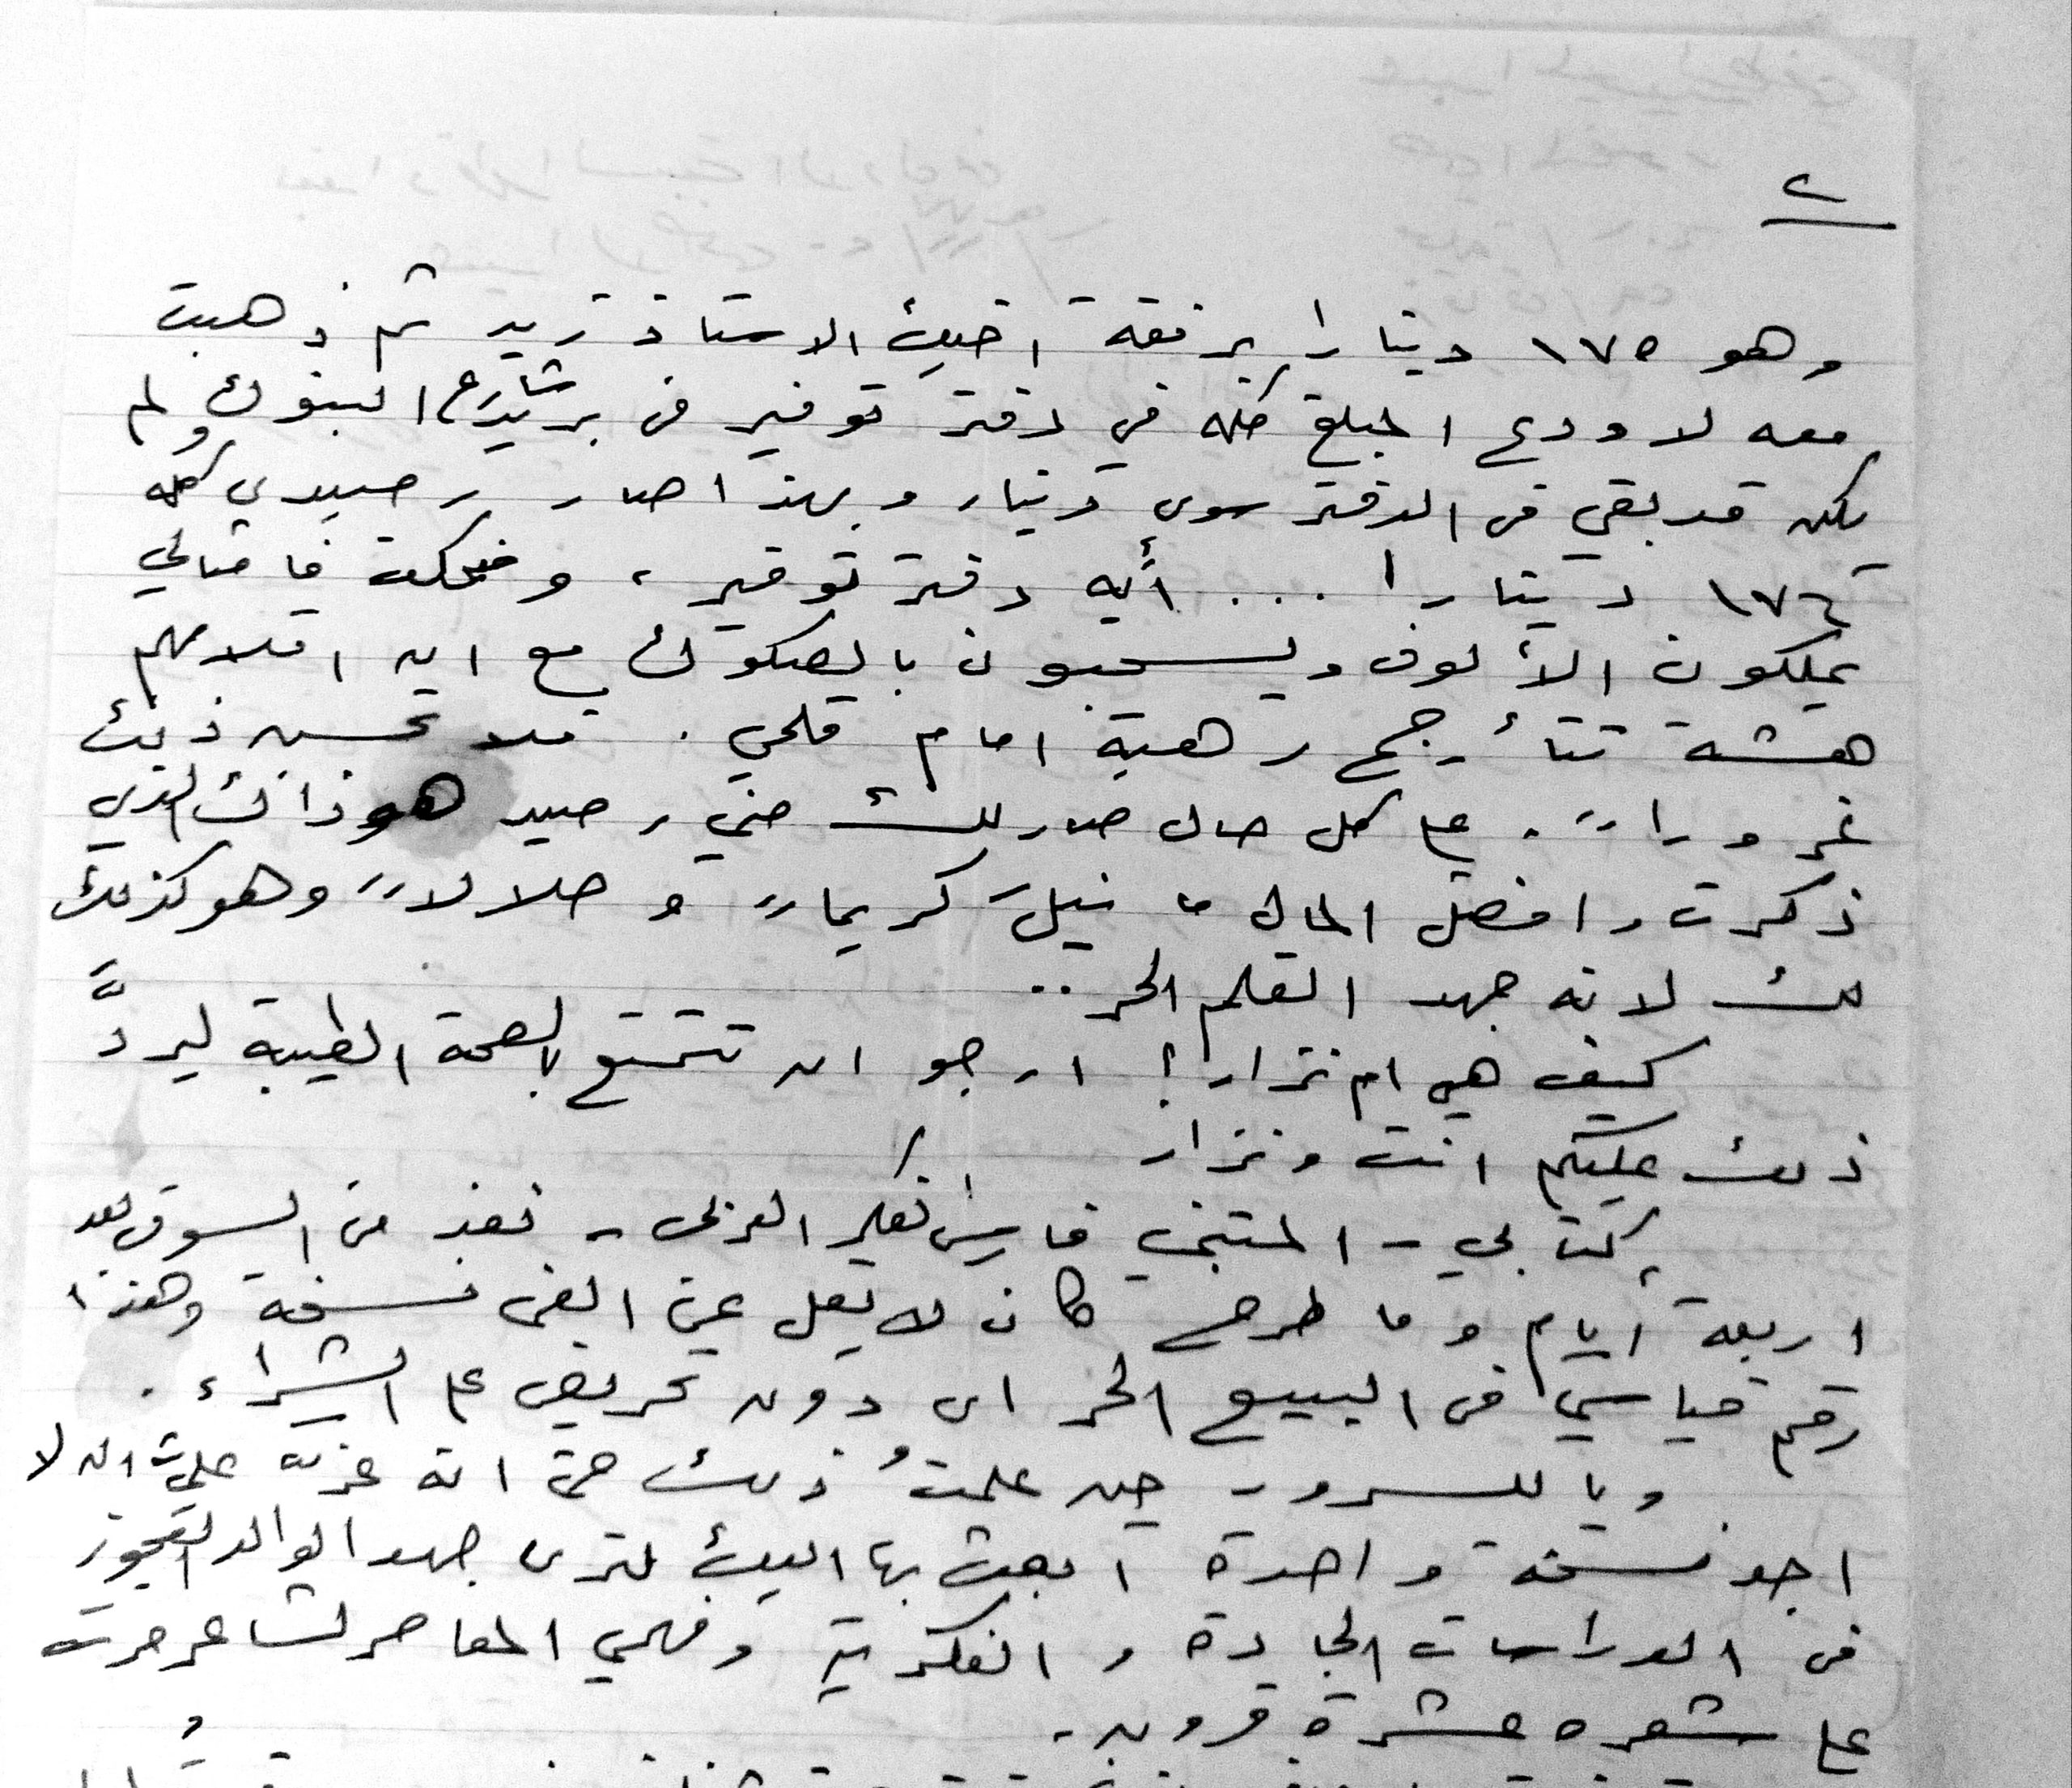 ٢
وهو ١٧٥ دينارا برفقة اخيك الاستاذ زيد ثم ذهبت
معه لاودع المبلغ كله في دفتر توفير في بريد شارع البنوك ولم
يكن قد بقي في الدفتر سوى دينار وبهذا صار رصيدي كله
١٧٦ دينارا ... أيه دفتر توفير، وضحكت فامثالي
يملكون الألوف ويسحبون بالصكوك مع ان اقلامهم
هشة تتأرجح رهبة امام قلمي . فلا تحسبن ذلك
غرورا . على كل حال صار لك مني رصيد هو ذاك الذي
ذكرت وافضل المال ما نيل كريماً وحلالاً وهو كذلك
لك لانه جهد القلم الحر ..
كيف هي ام نزار؟ ارجو ان تتمتع بالصحة الطيبة ليردَّ
ذلك عليكم انت ونزار
كتابي - المتنبي فارس الفكر العربي - نفذ من السوق بعد
اربعة أيام وما طرح كان لا يقل عن الفي نسخة وهذا
رقم قياسي في البيع الحر اي دون تحريض على الشراء .
ويا للسرور حين علمتُ ذلك حتى انه عز علي ان لا
اجد نسخة واحدة ابعث بها اليك لترى جهد الوالد العجوز
في الدراسات الجادة والفكرية وفهمي المعاصر لشاعر مرت
على شعره عشرة قرون .